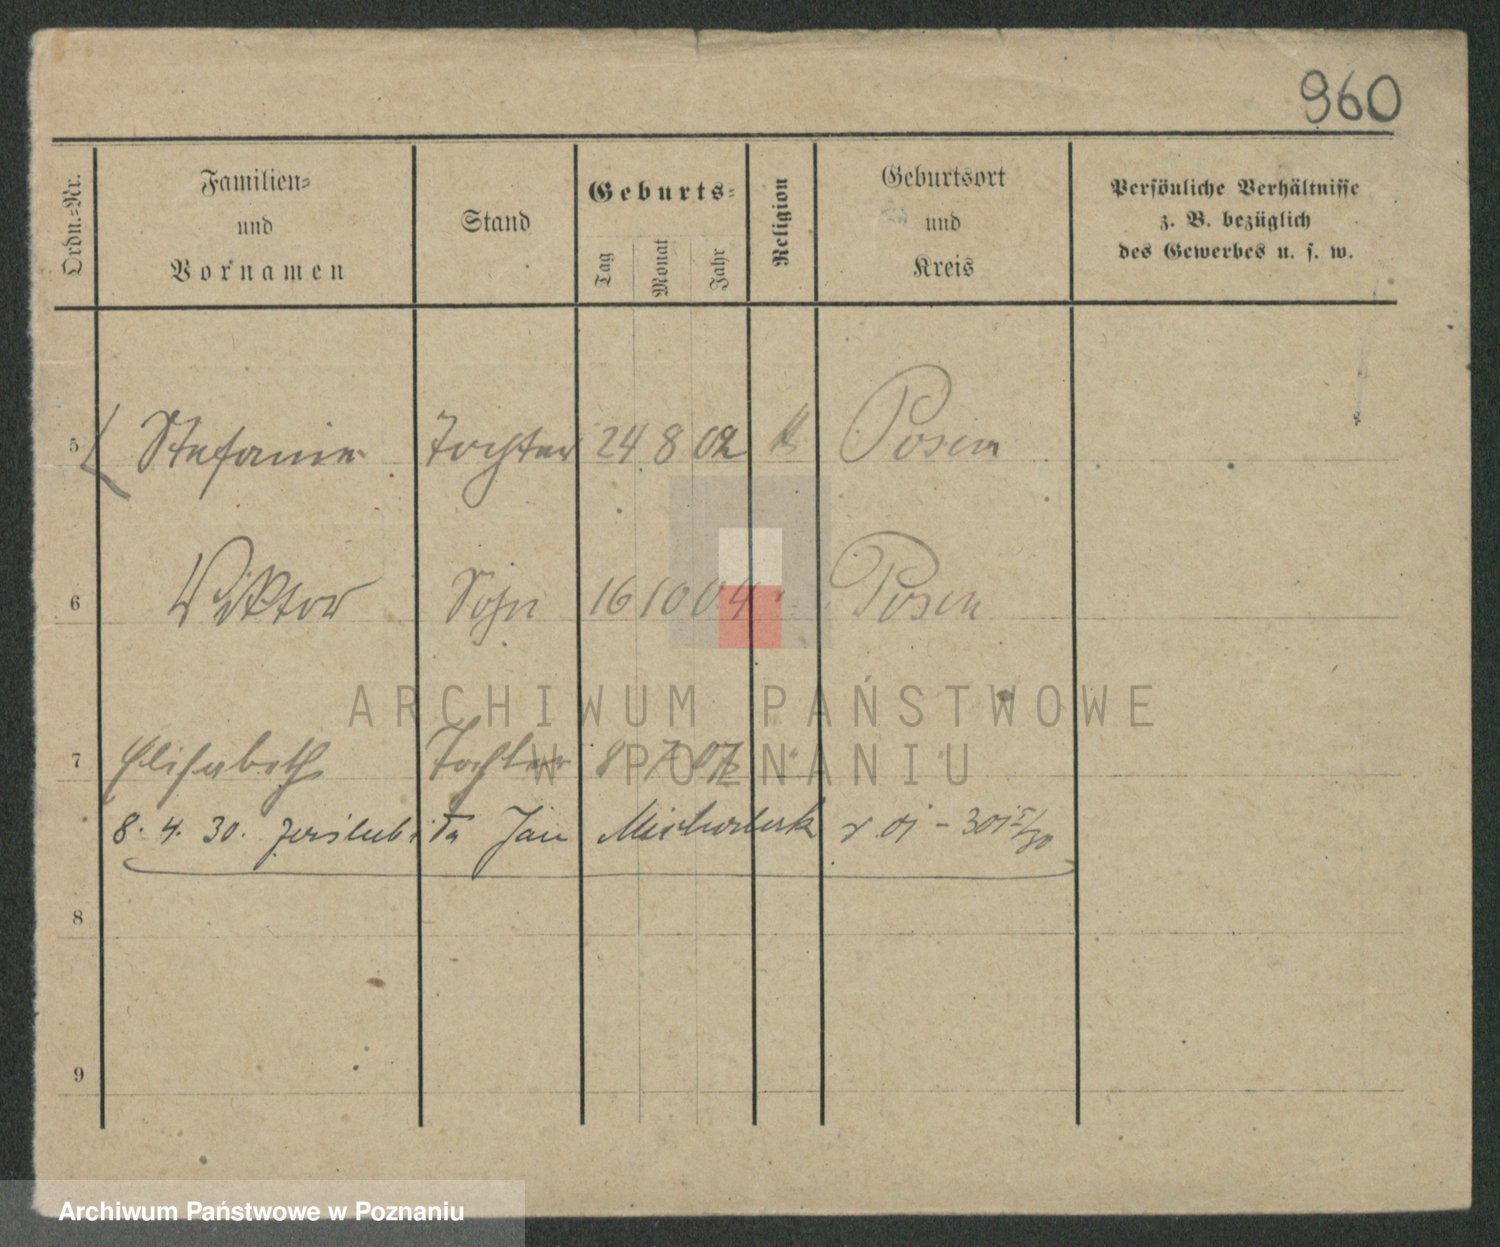 960
Ordn.-Nr.
Familien-
und
Vornamen
Stand
Geburts-
Tag Monat Jahr
Religion
Geburtsort
und
Kreis
Persönliche Verhältnisse
z. B. bezüglich
des Gewerbes u. s. w.
5 Stefanie Tochter 24 8 02 k Posen
6 Viktor Sohn 16 10 04 " Posen
ARCHIWUM PAŃSTWOWE
W POZNANIU
7 Elisabeth Tochter 8 7 07 " "
8. 4. 30. Jan
8
9
Archiwum Państwowe w Poznaniu